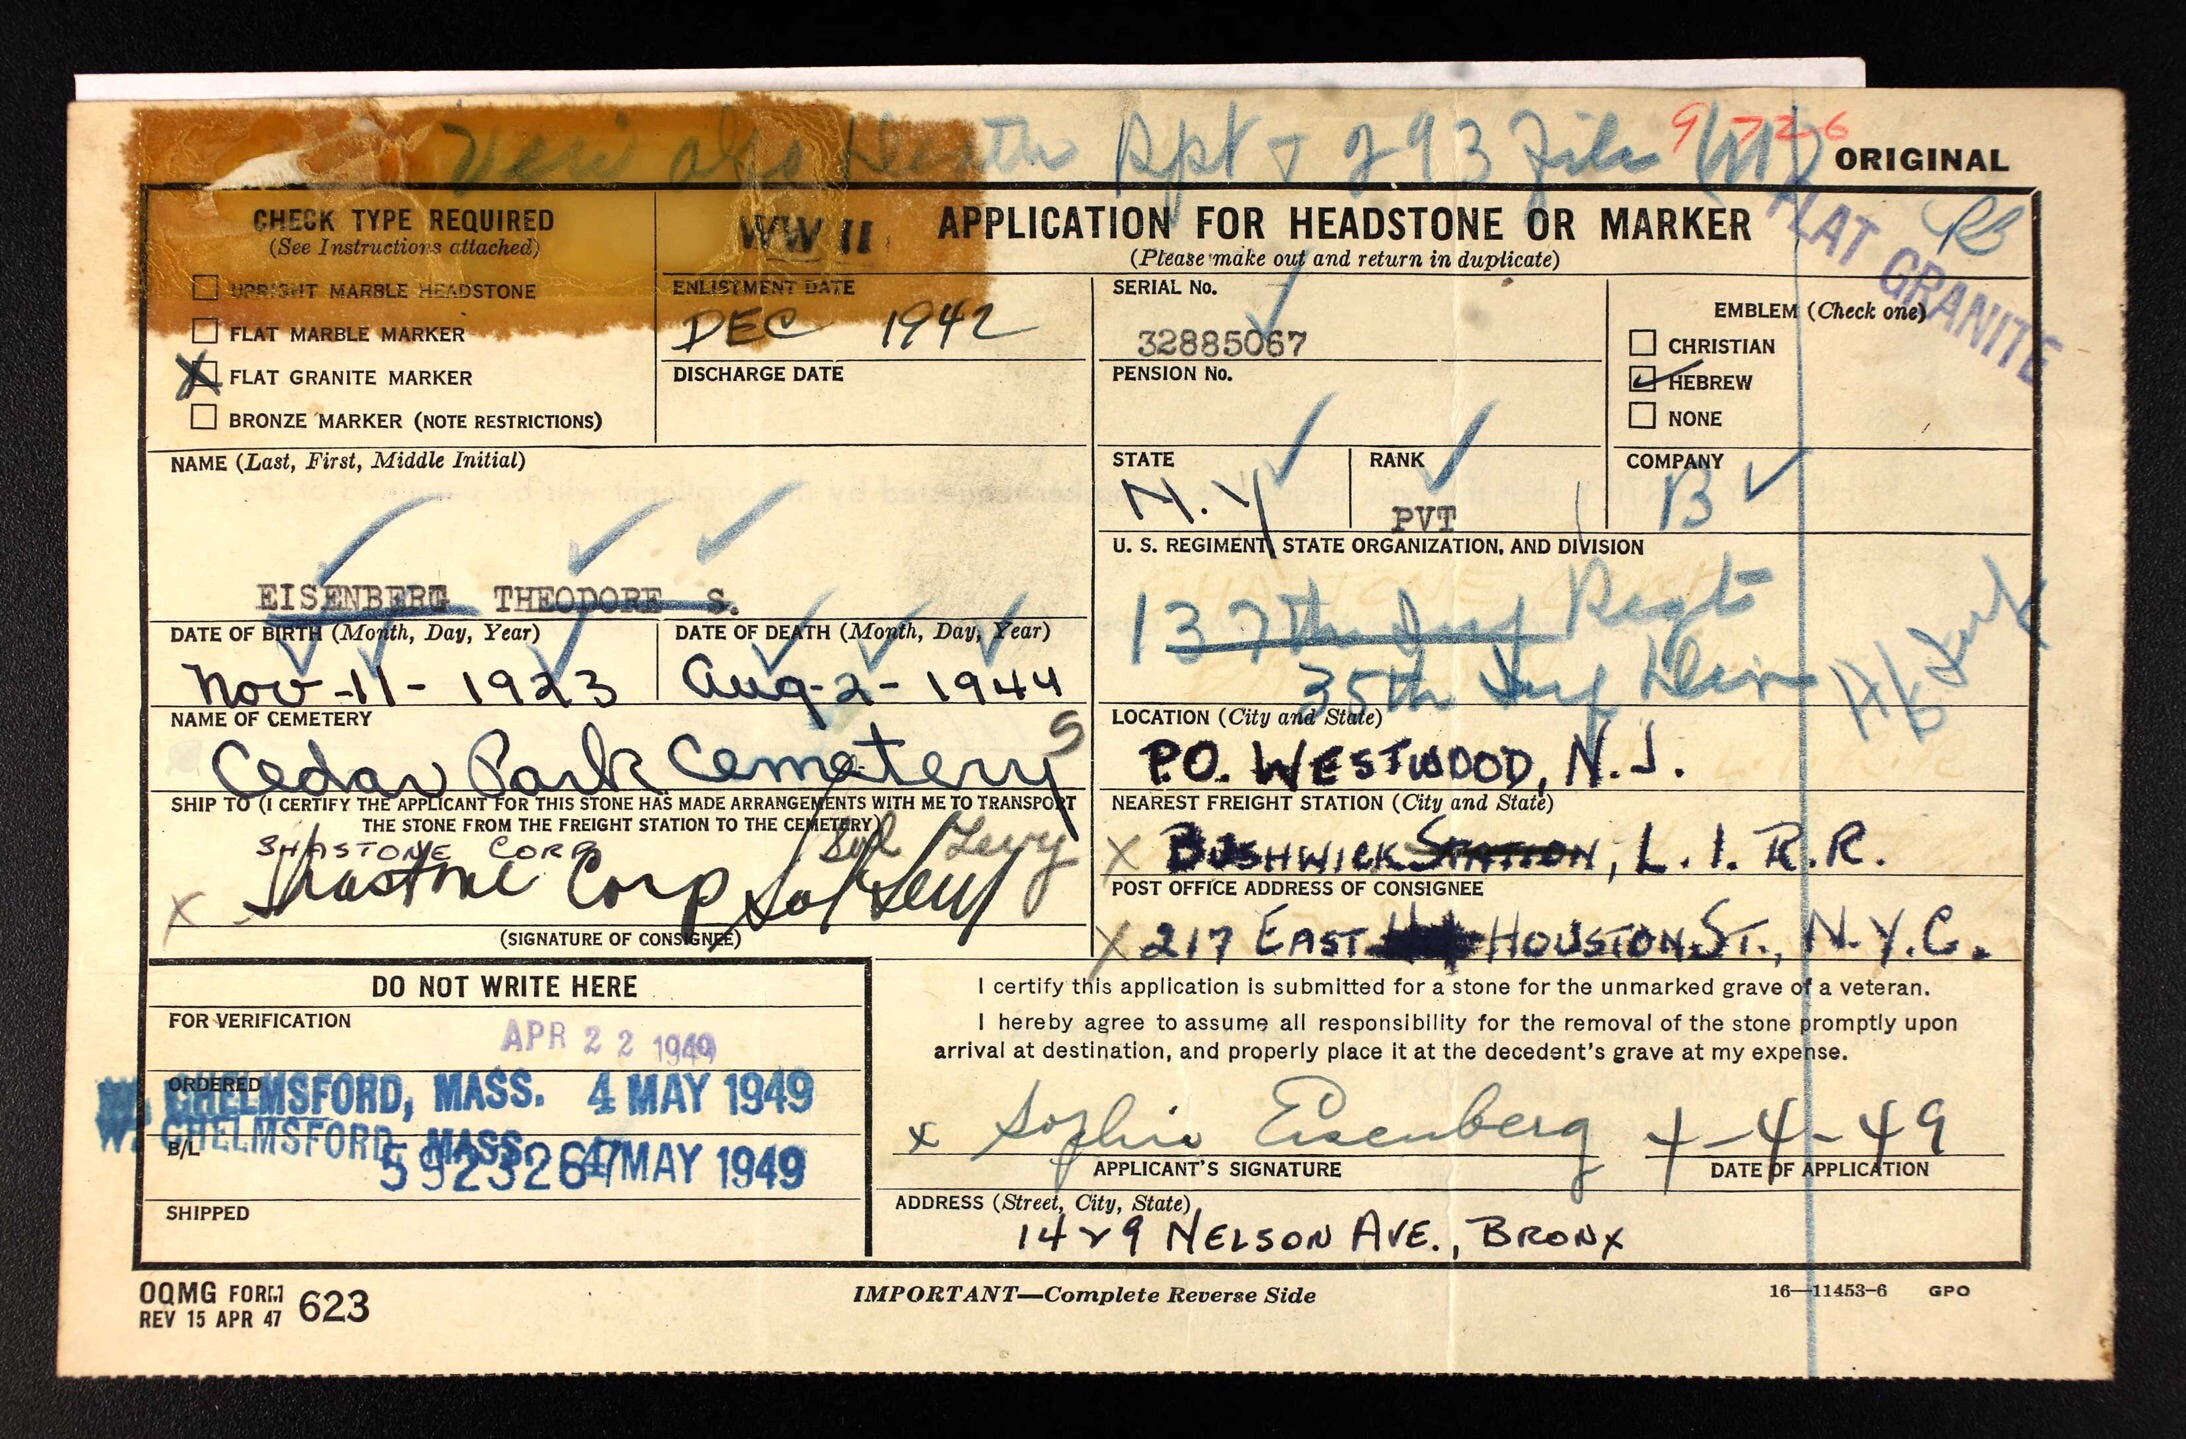 Veri also Death Rpt + 293 File
9 726
ORIGINAL
FLAT GRANITE
CHECK TYPE REQUIRED
(See Instructions attached)
UPRIGHT MARBLE HEADSTONE
FLAT MARBLE MARKER
X FLAT GRANITE MARKER
BRONZE MARKER (NOTE RESTRICTIONS)
WW II
APPLICATION FOR HEADSTONE OR MARKER
(Please make out and return in duplicate)
ENLISTMENT DATE
DEC 1942
DISCHARGE DATE
SERIAL No.
32885067
PENSION No.
EMBLEM (Check one)
CHRISTIAN
HEBREW
NONE
NAME (Last, First, Middle Initial)
EISENBERG THEODORE S.
STATE
N.Y
RANK
PVT
COMPANY
B
U. S. REGIMENT, STATE ORGANIZATION, AND DIVISION
137th Inf Regt
35th Inf Divn
DATE OF BIRTH (Month, Day, Year)
Nov-11-1923
DATE OF DEATH (Month, Day, Year)
Aug-2-1944
NAME OF CEMETERY
Cedar Park Cemetery
S
LOCATION (City and State)
P.O. WESTWOOD, N.J.
SHIP TO (I CERTIFY THE APPLICANT FOR THIS STONE HAS MADE ARRANGEMENTS WITH ME TO TRANSPORT
THE STONE FROM THE FREIGHT STATION TO THE CEMETERY)
SHASTONE CORP
Sol Levy
X Shastone Corp Sol Levy
(SIGNATURE OF CONSIGNEE)
NEAREST FREIGHT STATION (City and State)
X BUSHWICK STATION, L.I.R.R.
POST OFFICE ADDRESS OF CONSIGNEE
X 217 EAST HOUSTON ST., N.Y.C.
DO NOT WRITE HERE
FOR VERIFICATION
APR 22 1949
ORDERED
W. CHELMSFORD, MASS. 4 MAY 1949
W. CHELMSFORD, MASS.
B/L
5923267
4 MAY 1949
SHIPPED
I certify this application is submitted for a stone for the unmarked grave of a veteran.
I hereby agree to assume all responsibility for the removal of the stone promptly upon
arrival at destination, and properly place it at the decedent's grave at my expense.
x Sophie Eisenberg 4-4-49
APPLICANT'S SIGNATURE
DATE OF APPLICATION
ADDRESS (Street, City, State)
1429 NELSON AVE., BRONX
OQMG FORM 623
REV 15 APR 47
IMPORTANT—Complete Reverse Side
16—11453-6 GPO